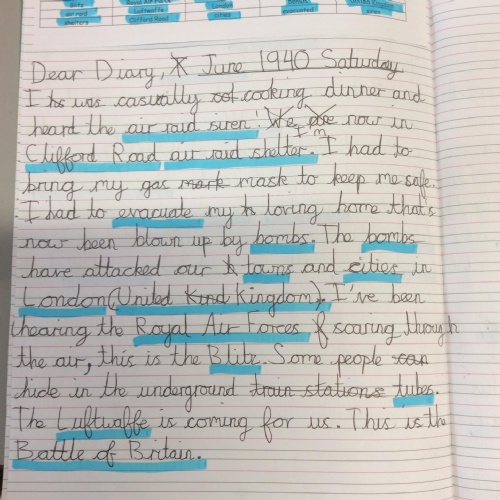 Blitz Royal Air Force London bombs United Kingdom
air raid Luftwaffe cities evacuated siren
shelters Clifford Road
Dear Diary, June 1940 Saturday
I was casually cooking dinner and
heard the air raid siren! We are now in
I'm
Clifford Road air raid shelter. I had to
bring my gas mark mask to keep me safe.
I had to evacuate my loving home that's
now been blown up by bombs. The bombs
have attacked our towns and cities in
London (United Kind Kingdom). I've been
hearing the Royal Air Forces soaring through
the air, this is the Blitz. Some people can
hide in the underground train stations tubes.
The Luftwaffe is coming for us. This is the
Battle of Britain.